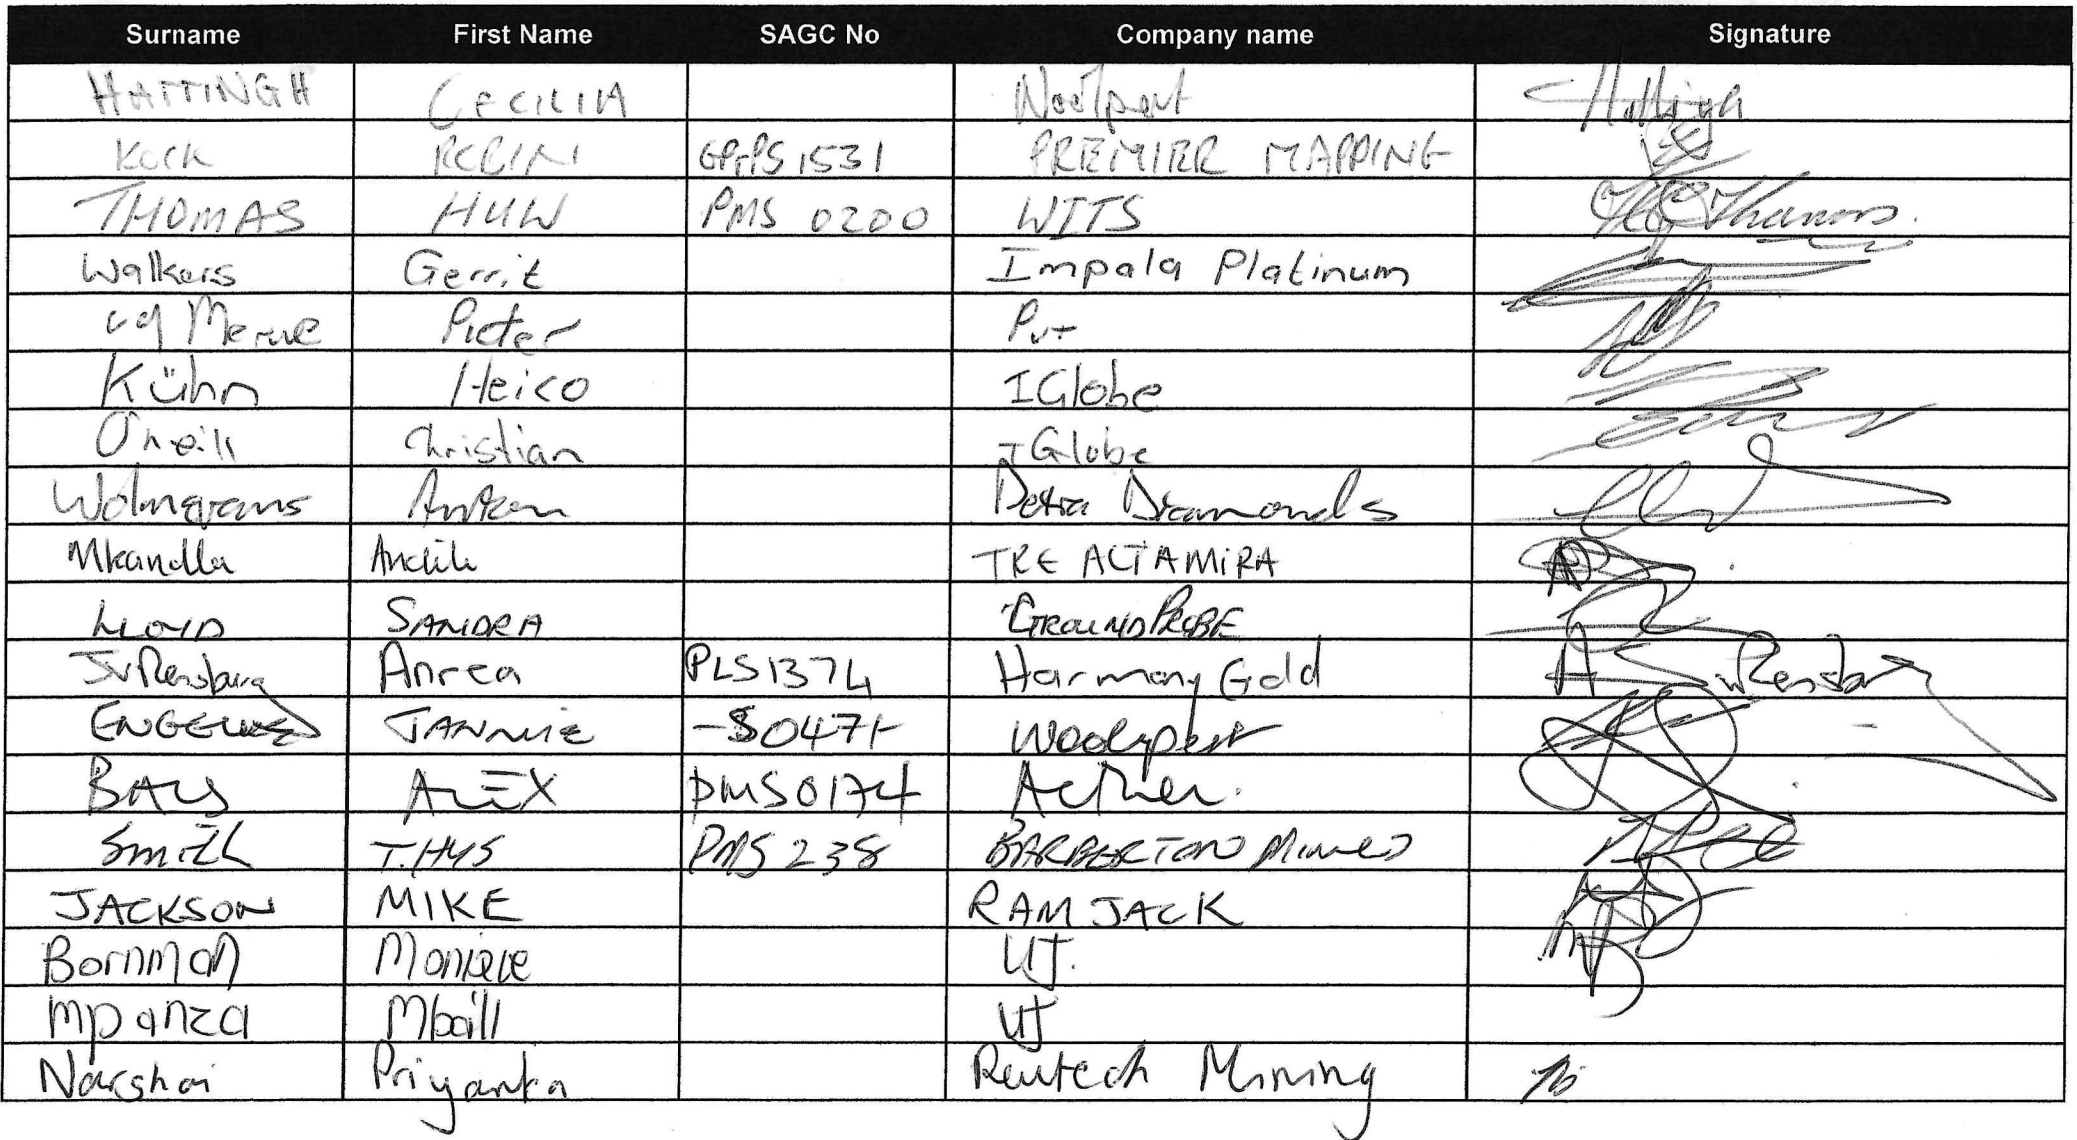 Surname First Name SAGC No Company name Signature
HATTINGH CECILIA
Kock ROBIN GPrPS 1531 PREMIER MAPPING
THOMAS HUW PMS 0200 WITS
Walkers Gerrit Impala Platinum
vd Merwe Pieter
Kühn Heico IGlobe
O'neill Christian IGlobe
Wolmarans Petra Diamonds
Mkandla Andile TRE ALTAMIRA
LLOYD SANDRA GROUNDPROBE
JvRensburg Anrea PLS1374 Harmony Gold
JANNIE
BALS ALEX PMS0174 Aether.
Smith THYS PMS 238 BARBERTON Mines
JACKSON MIKE RAMJACK
Bornman UJ.
Mpanza UJ
Narshai Priyanka Reutech Mining